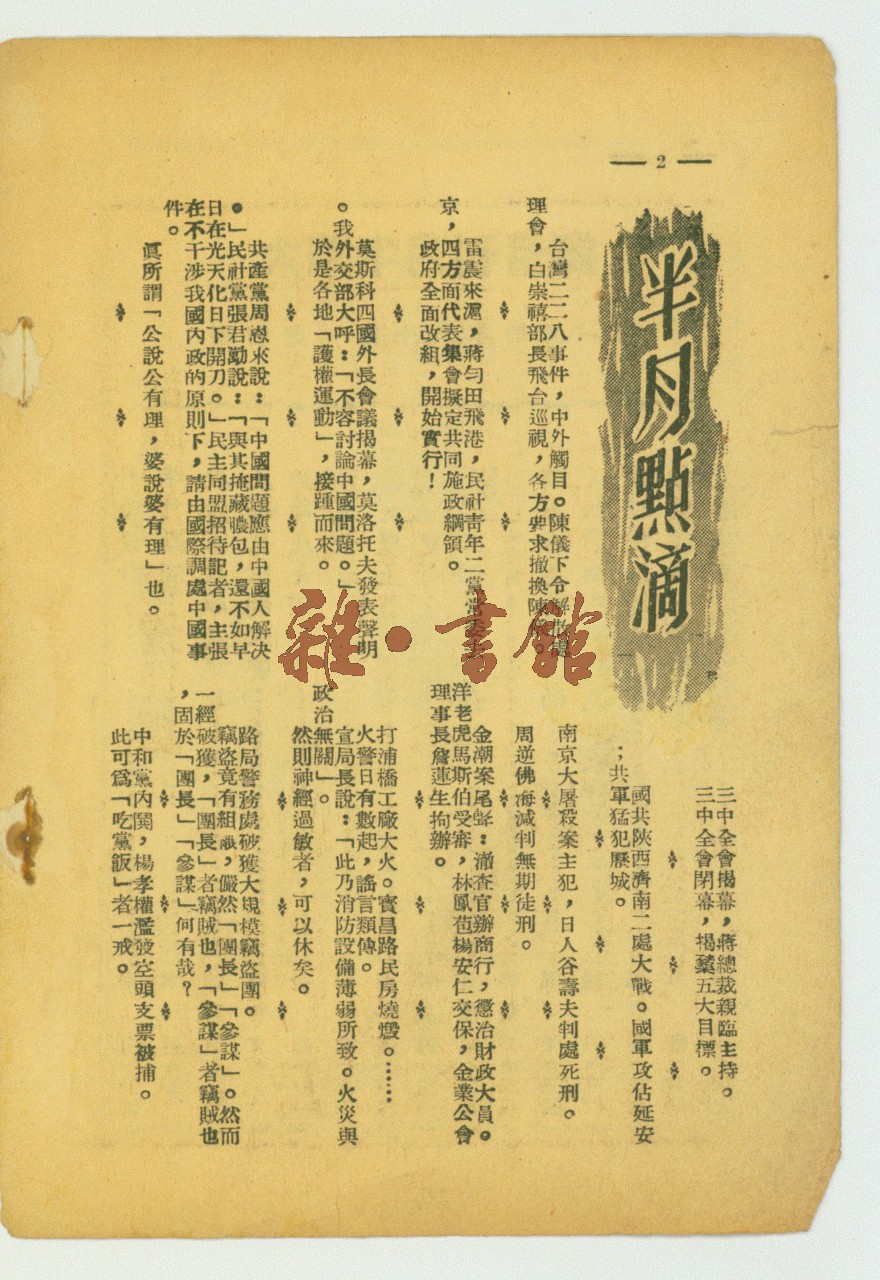 2
半月點滴
台灣二二八事件，中外觸目。陳儀下令解散處
理會，白崇禧部長飛台巡視，各方要求撤換陳儀。
雷震來滬，蔣勻田飛港，民社青年二黨常委去
京，四方面代表集會擬定共同施政綱領。
政府全面改組，開始實行！
莫斯科四國外長會議揭幕，莫洛托夫發表聲明
。我外交部大呼：「不容討論中國問題。」
於是各地「護權運動」，接踵而來。
共產黨周恩來說：「中國問題應由中國人解決
。」民社黨張君勱說：「與其掩藏膿包，還不如早
日在光天化日下開刀。」民主同盟招待記者，主張
在不干涉我國內政的原則下，請由國際調處中國事
件。
眞所謂「公說公有理，婆說婆有理」也。
三中全會揭幕，蔣總裁親臨主持。
三中全會閉幕，揭櫫五大目標。
國共陝西濟南二處大戰。國軍攻佔延安
；共軍猛犯歷城。
南京大屠殺案主犯，日人谷壽夫判處死刑。
周逆佛海減判無期徒刑。
金潮案尾聲：澈查官辦商行，懲治財政大員。
洋老虎馬斯伯受審，林鳳苞楊安仁交保，金業公會
理事長詹蓮生拘辦。
打浦橋工廠大火。寶昌路民房燒燬。……
火警日有數起，謠言類傳。
宣局長說：「此乃消防設備薄弱所致。火災與
政治無關」。
然則神經過敏者，可以休矣。
路局警務處破獲大規模竊盜團。
竊盜竟有組織，儼然「團長」「參謀」。然而
一經破獲，「團長」者竊賊也，「參謀」者竊賊也
，固於「團長」「參謀」何有哉？
中和黨內鬨，楊孝權濫發空頭支票被捕。
此可爲「吃黨飯」者一戒。
雜·書館